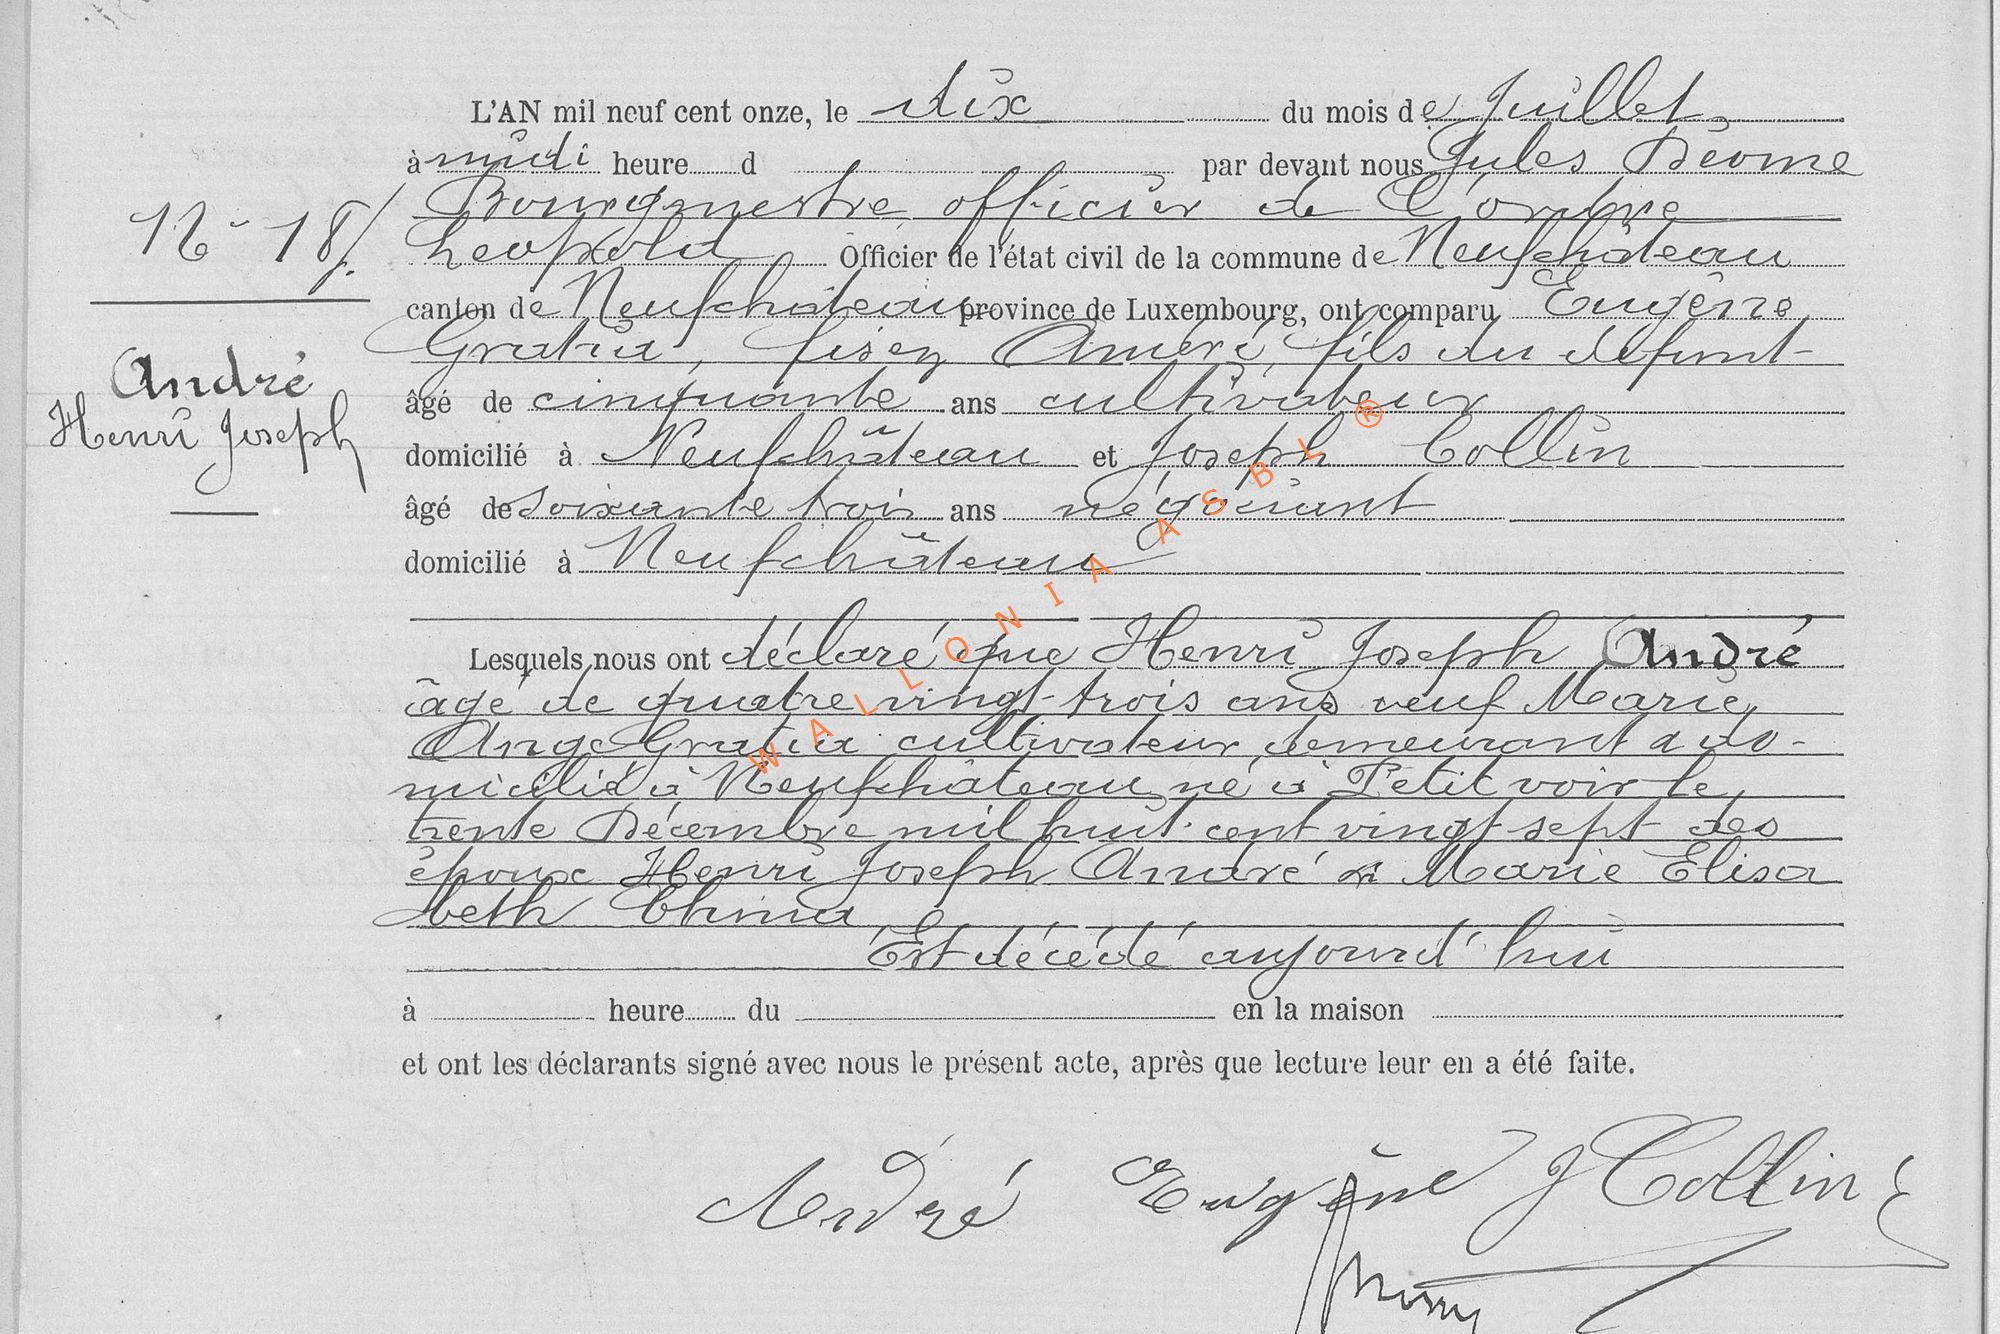 L'AN mil neuf cent onze, le dix du mois de Juillet
à midi heure d par devant nous Jules Déome
Bourgmestre officier de l'ordre
Léopold Officier de l'état civil de la commune de Neufchâteau
canton de Neufchâteau province de Luxembourg, ont comparu Eugène
Gratia, lisez André, fils du défunt
âgé de cinquante ans cultivateur
domicilié à Neufchâteau et Joseph Collin
âgé de soixante trois ans négociant
domicilié à Neufchâteau
N° 18
André
Henri Joseph
Lesquels nous ont déclaré que Henri Joseph André
âgé de quatre vingt-trois ans veuf Marie
Ange Gratia cultivateur demeurant & do-
micilié à Neufchâteau né à Petitvoir le
trente Décembre mil huit cent vingt sept des
époux Henri Joseph André & Marie Elisa
beth
Est décédé aujourd'hui
à heure du en la maison
et ont les déclarants signé avec nous le présent acte, après que lecture leur en a été faite.
André Eugène J Collin
WALLONIA ASBL ®